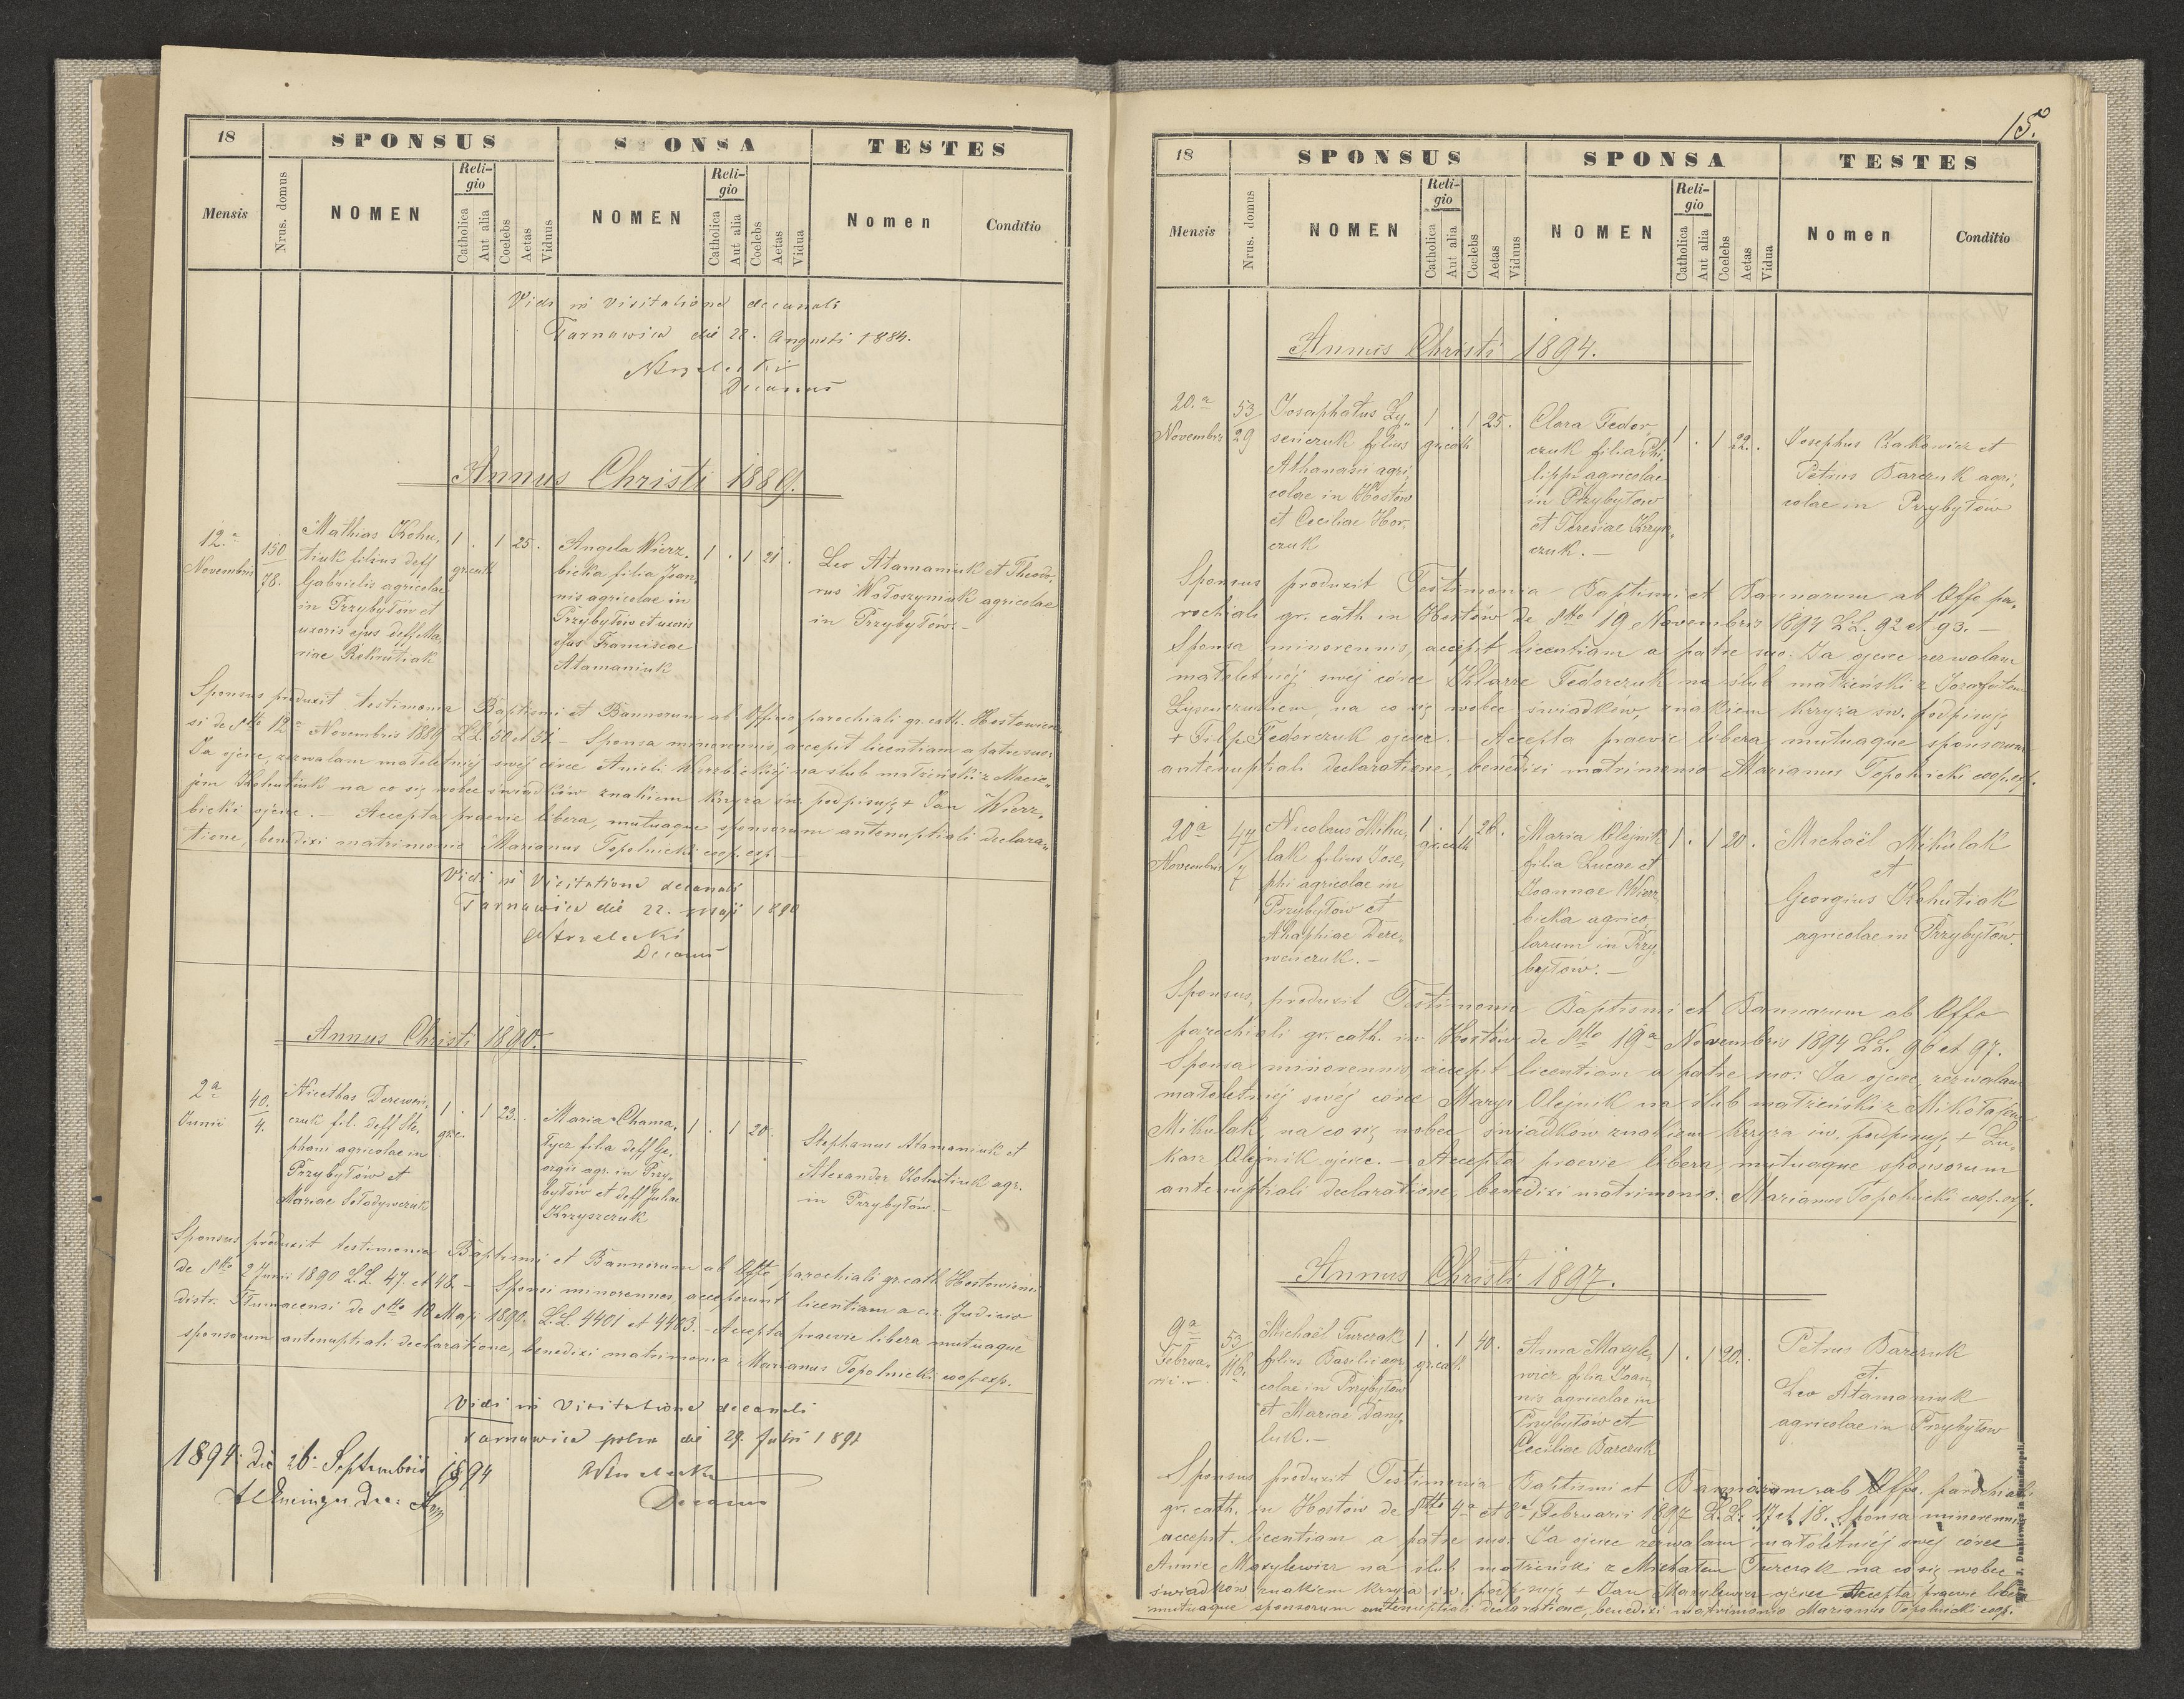 18 SPONSUS S ONSA TESTES
Mensis Nrus. domus NOMEN Religio Catholica Aut alia Coelebs Aetas Viduus NOMEN Religio Catholica Aut alia Coelebs Aetas Vidua Nomen Conditio
Vidi in visitatione decanali
Tarnawica die 22. Augusti 1884.
Decanus
Annus Christi 1889.
12.a Novembris
150
78.
Mathias Kohu,
tiuk filius deff
Gabrielis agricolae
in Przybyłów et
uxoris ejus deff Ma,
riae Rekrutiak
1 . 1 25 .
gr.cath
Angela Wierz,
bicka filia Joan,
nis agricolae in
Przybyłów et uxoris
ejus Franciscae
Atamaniuk
1 . 1 21 .
Leo Atamaniuk et Theodo,
rus Wołoszyniuk agricolae
in Przybyłów. -
Sponsus produxit testimonia Baptismi et Bannorum ab Officio parochiali gr. cath. Hostowien,
si de dtto 12a Novembris 1889 LL. 50 et 51. - Sponsa minorennis, accepit licentiam a patre suo:
Ja ojciec, zezwalam małoletniéj swej córce Anieli Wierzbickiéj na ślub małżeński z Macie,
jem Kohutiuk na co się wobec świadków znakiem krzyża św. podpisuję + Jan Wierz,
bicki ojciec. - Accepta praevie libera, mutuaque sponsorum antenuptiali declara,
tione, benedixi matrimonio Marianus Topolnicki coop. exp. -
Vidi in Visitatione decanali
Tarnawica die 22. maji 1890
Decanus
Annus Christi 1890.
2a Junii
40.
4.
Nicethas Derewen,
czuk fil. deff Ste,
phani agricolae in
Przybyłów et
Mariae Sołodywczuk
1 . 1 23. .
gr.c.
Maria Chama,
łycz filia deff Ge,
orgii agr. in Przy,
byłów et deff Juliae
Kryszczuk
1 . 1 20 .
Stephanus Atamaniuk et
Alexander Kohutiuk agr.
in Przybyłów. -
Sponsus produxit testimonia Baptismi et Bannorum ab Offo parochiali gr. cath. Hostowiensi
de dtto 2 Junii 1890 L.L. 47. et 48. - Sponsi minorennes, acceperunt licentiam a c.r. Judicio
distr. Tłumacensi de dtto 10 Maji 1890. L.L. 4401 et 4403. - Accepta praevie libera mutuaque
sponsorum antenuptiali declaratione, benedixi matrimonio Marianus Topolnicki coop. exp.
Vidi in visitatione decanali
Tarnawica polna die 29. Julii 1891
Decanus
1894. Die 26. Septembris 1894
15.
18 SPONSUS SPONSA TESTES
Mensis Nrus. domus NOMEN Religio Catholica Aut alia Coelebs Aetas Viduus NOMEN Religio Catholica Aut alia Coelebs Aetas Vidua Nomen Conditio
Annus Christi 1894.
20.a Novembris
53
29
Josaphatus Ły,
seńczuk filius
Athanasii agri,
colae in Hostów
et Ceciliae Hor,
czuk
1 . 1 25 .
gr.cath
Clara Fedor,
czuk filia Phi,
lippi agricolae
in Przybyłów
et Teresiae Krysz,
czuk. -
1 . 1 22. .
Josephus Czakowicz et
Petrus Barczuk agri,
colae in Przybyłów
Sponsus produxit Testimonia Baptismi et Bannorum ab Offo pa,
rochiali gr. cath. in Hostów de dtto 19 Novembris 1894 LL. 92 et 93. -
Sponsa minorennis, accepit licentiam a patre suo: Ja ojciec zezwalam
małoletniéj swéj córce Klarze Fedorczuk na ślub małżeński z Josafatem
Łysenczukiem, na co się wobec świadków, znakiem krzyża św. podpisuję
+ Filip Fedorczuk ojciec. - Accepta praevie libera, mutuaque sponsorum
antenuptiali declaratione, benedixi matrimonio Marianus Topolnicki coop. exp.
20a Novembris
47
7
Nicolaus Miku,
lak filius Jose,
phi agricolae in
Przybyłów et
Ahaphiae Dere,
weńczuk. -
1 . 1 26 .
gr.cath
Maria Olejnik
filia Lucae et
Joannae Wierz,
bicka agrico,
larum in Przy,
byłów. -
1 . 1 20 .
Michaël Mikulak
et
Georgius Kohutiak
agricolae in Przybyłów.
Sponsus, produxit Testimonia Baptismi et Bannorum ab Offo
parochiali gr. cath. in Hostów de dtto 19a Novembris 1894 LL. 96 et 97.
Sponsa minorennis accepit licentiam a patre suo: Ja ojciec, zezwalam
małoletniéj swéj córce Maryi Olejnik na ślub małżeński z Mikołajem
Mikulak, na co się wobec świadków znakiem krzyża św. podpisuję + Łu,
kasz Olejnik ojciec. - Accepta praevie libera, mutuaque sponsorum
antenuptiali declaratione, benedixi matrimonio: Marianus Topolnicki coop. exp.
Annus Christi 1897.
9a Februa,
rii
53
116.
Michaël Turczak
filius Basilii agri
colae in Przybyłów
et Mariae Dany,
luk. -
1 . 1 40 .
gr.cath.
Anna Maxyle,
wicz filia Joan,
nis agricolae in
Przybyłów et
Ceciliae Barczuk
1 . 1 20. .
Petrus Barczuk
et
Leo Atamaniuk
agricolae in Przybyłów
Sponsus produxit Testimonia Baptismi et Bannorum ab Offo. parochiali
gr. cath. in Hostów de dtto 4a et 8a Februarii 1897 L.L. 17 et 18. Sponsa minorennis
accepit licentiam a patre suo: Ja ojciec zezwalam małoletniéj swej córce
Annie Maxylewicz na ślub małżeński z Michałem Turczak na co się wobec
świadków znakiem krzyża św. podpisuję + Jan Maxylewicz ojciec Accepta praevie libera
mutuaque sponsorum antenuptiali declaratione, benedixi matrimonio Marianus Topolnicki coop.